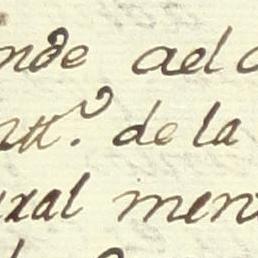 nde ael
ntt.º de la
xal men